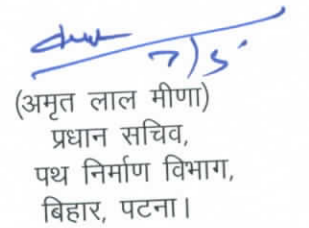 7/5
(अमृत लाल मीणा)
प्रधान सचिव,
पथ निर्माण विभाग,
बिहार, पटना।